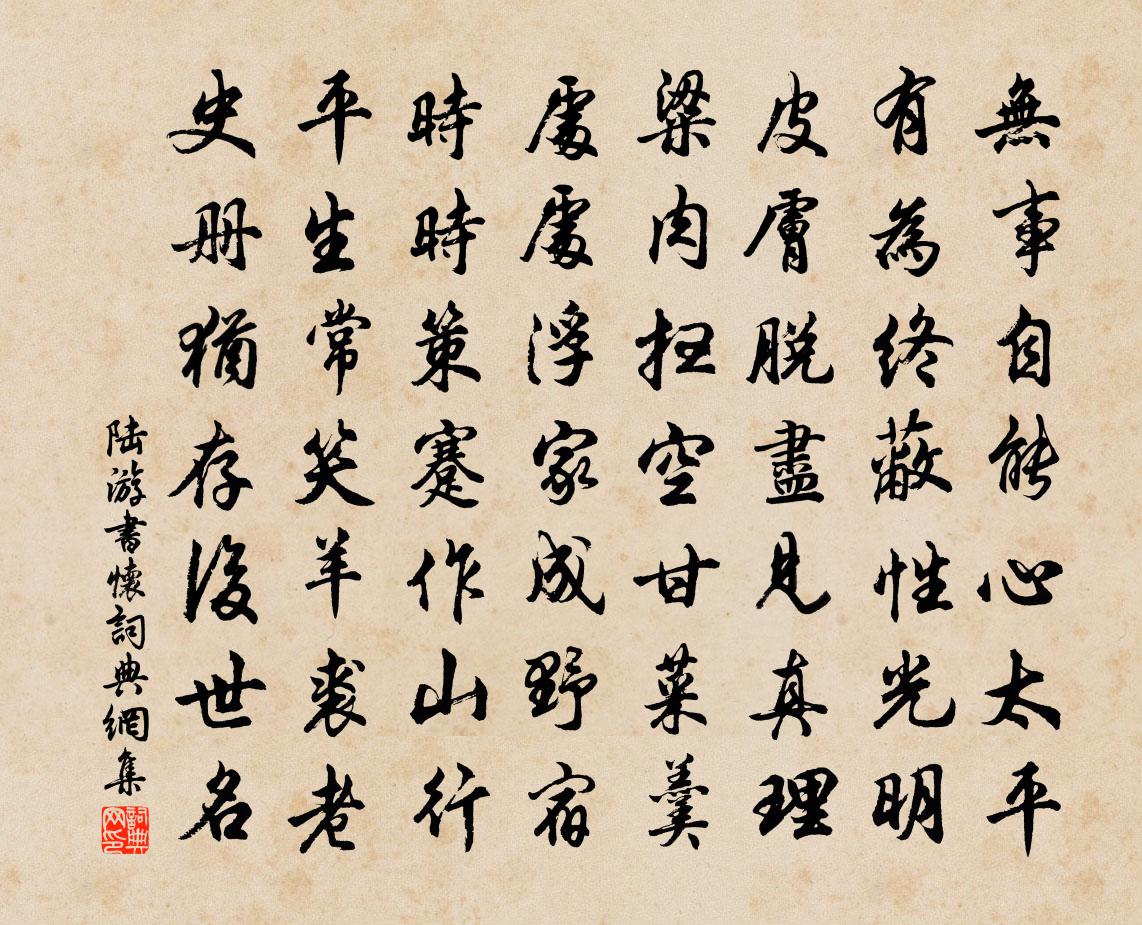 無事自能心太平
有為終蔽性光明
皮膚脫盡見真理
粱肉扫空甘菜羹
處處浮家成野宿
時時策蹇作山行
平生常笑羊裘老
史冊猶存後世名
陸游書懷詞典網集
詞典网印